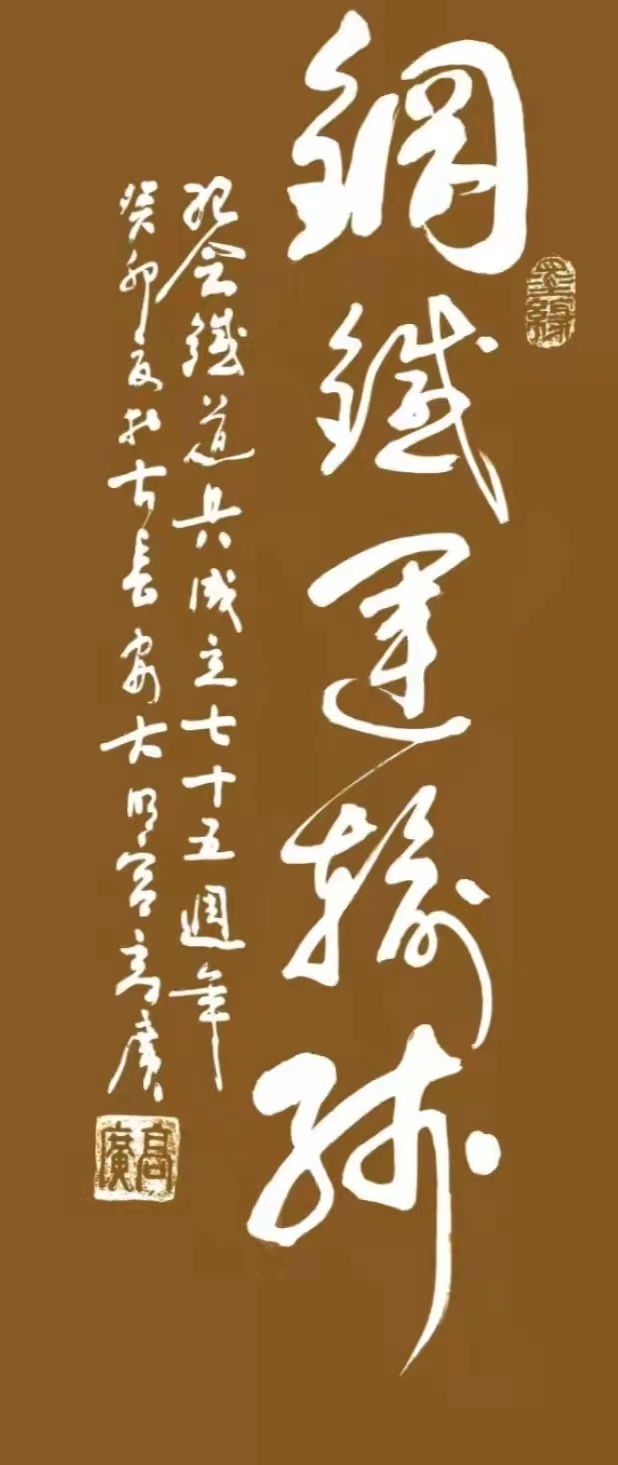 墨緣
鋼鐵運輸綫
紀念鐵道兵成立七十五週年
癸卯夏於古長安大明宮高廣
高廣